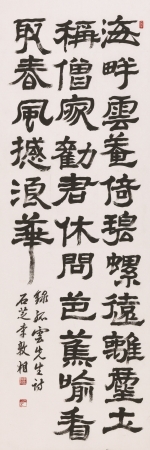 海畔雲菴倚碧螺遠離塵土
稱僧家勸君休問芭蕉喻看
取春風撼浪華
錄孤雲先生詩
石芝李敦相